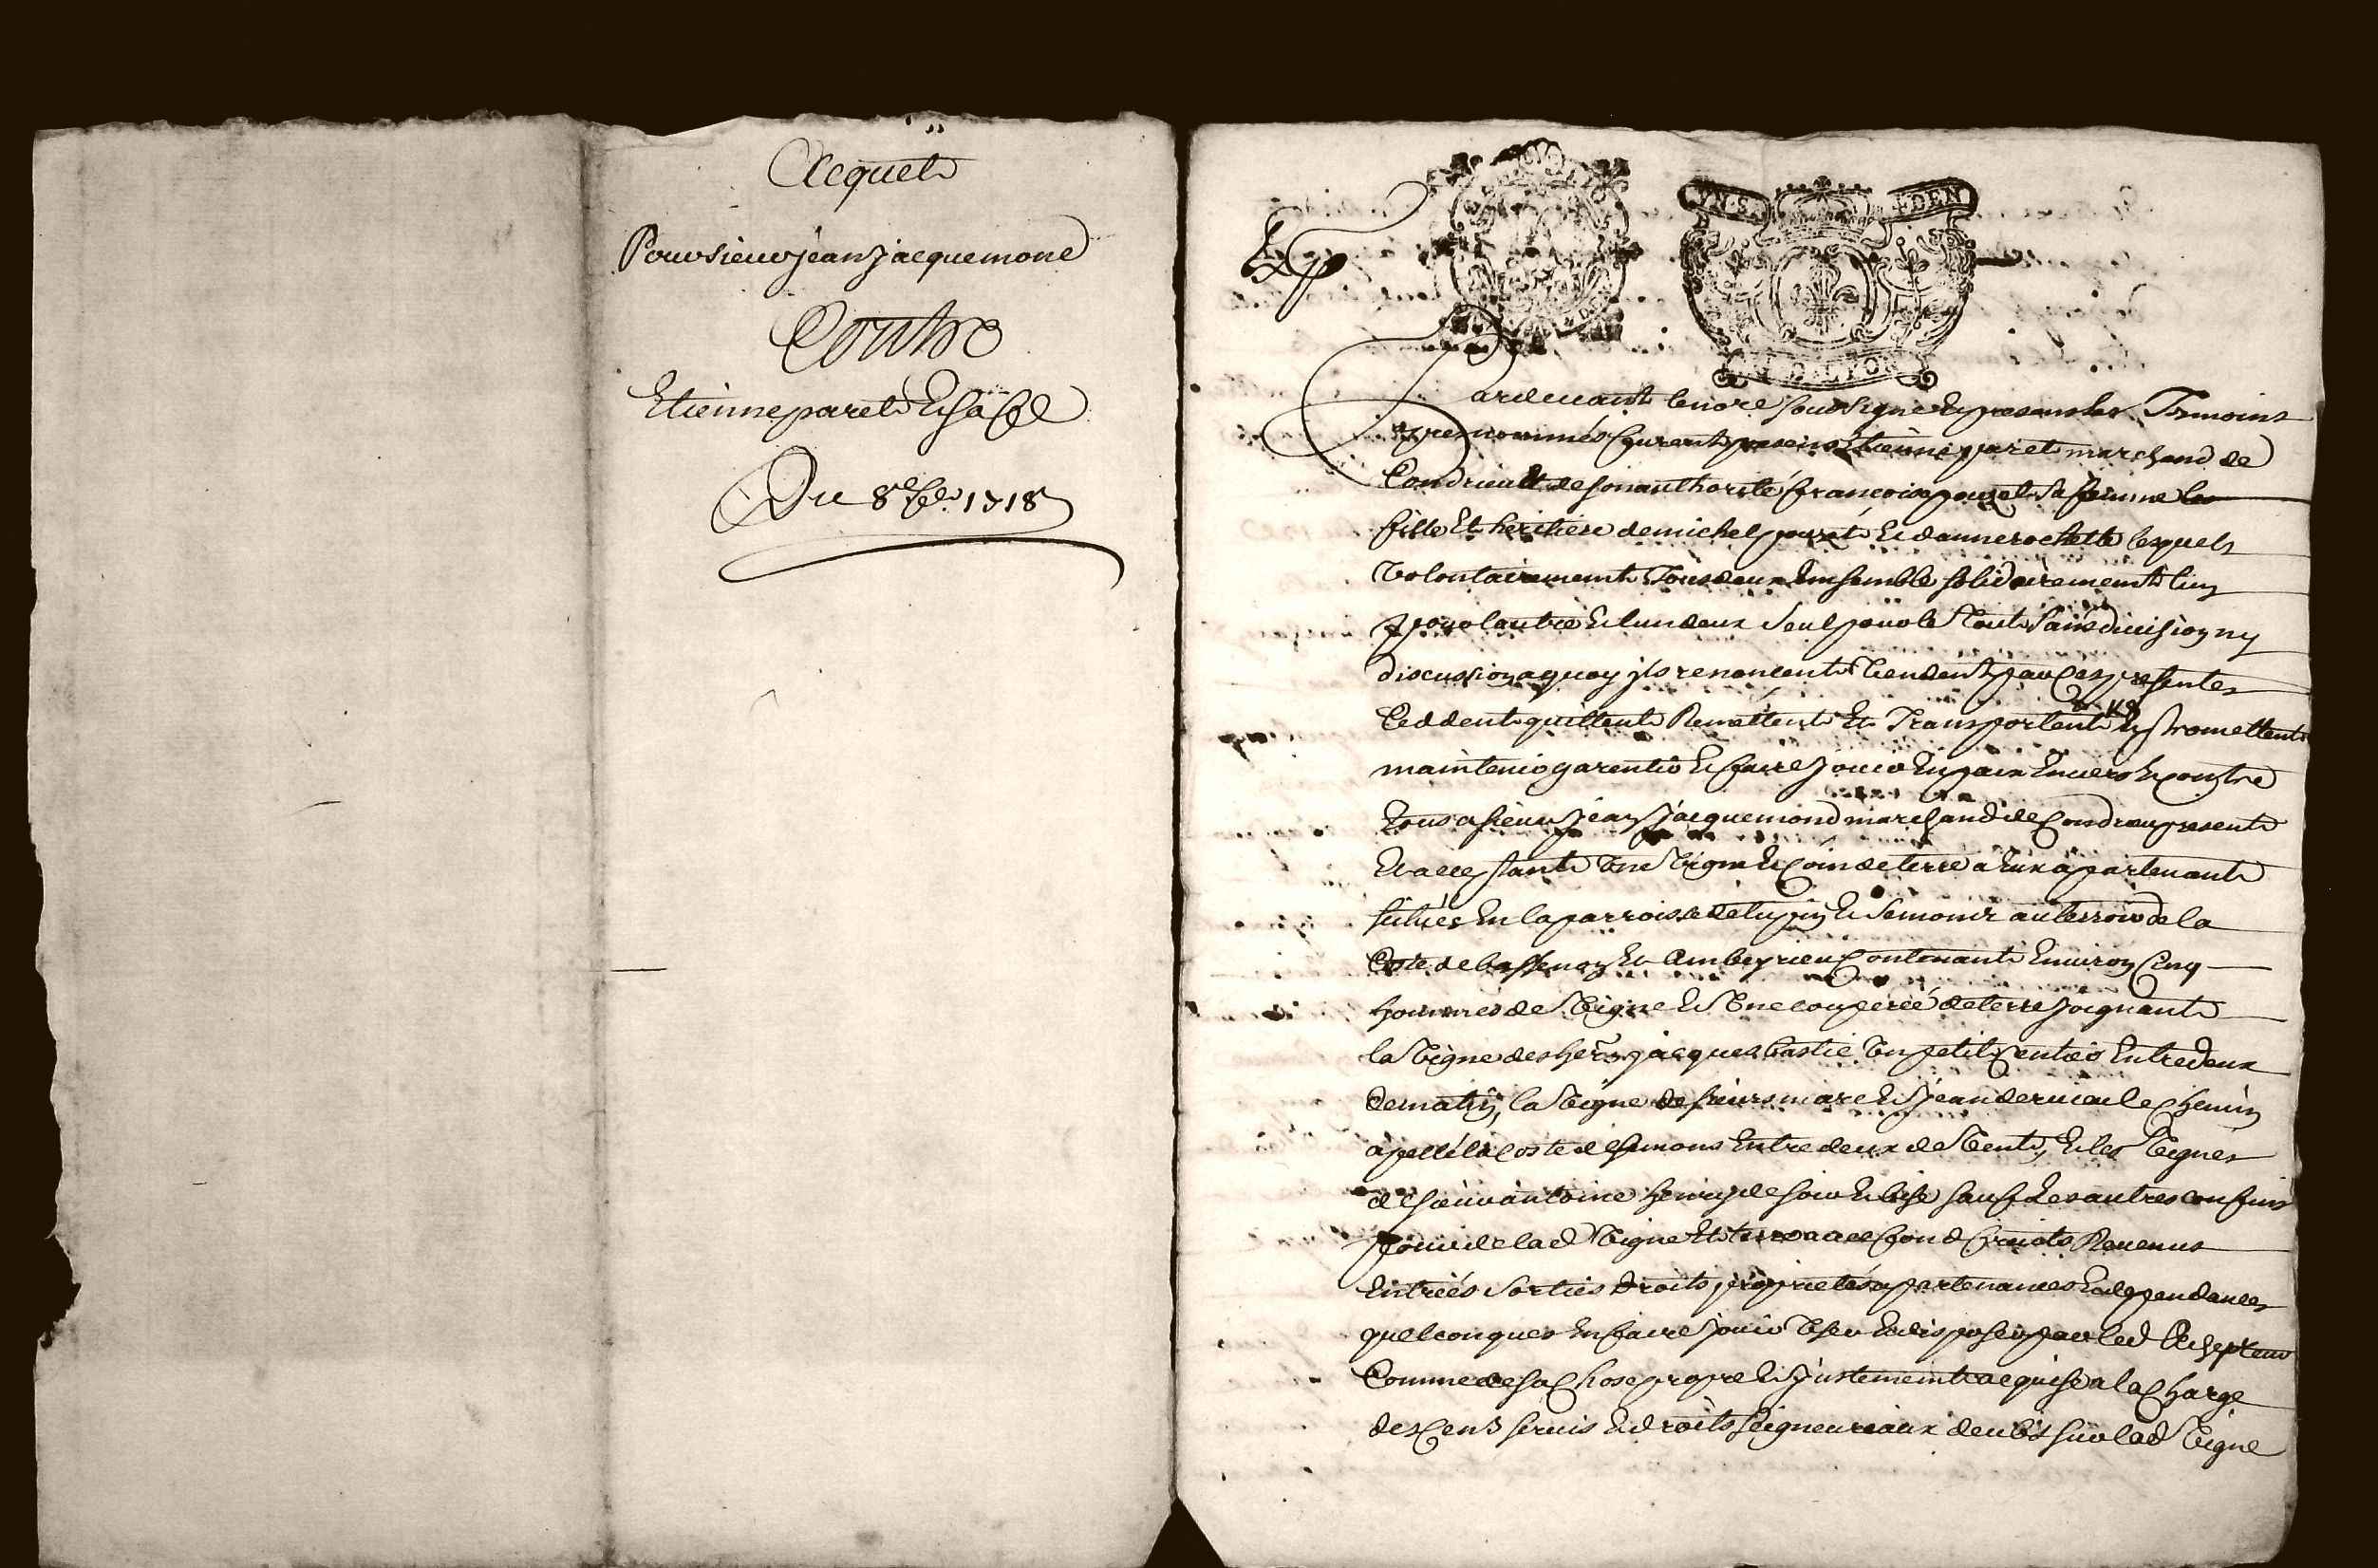 Acquet
Pour sieur jean jacquemond
Contre
Etienne paret Et sa fe
Du 8e 7bre 1718
VN S. 4 DEN
G DE LYON
Pardeuant le no.re soussigné Et presens les Tesmoins
apres nommés furent presens Etienne paret marchand de
Condrieu Et de son authorité françoise pouzet sa femme
fille Et heritiere de michel pouzet Et danne rochette lesquels
Volontairement Tous deux Ensemble solidairement lun
pour lautre Et lun deux seul pour le Tout sans diuision ny
discussion a quoy ils renoncent Vendent par Ces presentes
Ceddent quittent Remettent Et Transportent Et promettent
maintenir garentir Et faire Jouir En paix Enuers Et contre
tous a sieur Jean Jacquemond marchand de Condrieu present
Et acceptant Vne Vigne Et Coin de terre a Eux apartenant
scitués En la parroisse de tupin Et Semons au terroir de la
Coste de bassenon Et Ambeyrieu Contenant Enuiron Cinq
hommes de Vigne Et Vne couperée de terre Joignant
la Vigne des her.s jacques bastie Vn petit sentier Entredeux
de matin, la Vigne de sieurs marc Et Jean deruieu le Chemin
apellé la Coste de semons Entre deux de Vent, Et les Vignes
de sieur antoine henry de soir Et bise sauf Les autres confins
Jouir de lad Vigne Et terre auec fond fruits Reuenus
Entrées Sorties Droits proprietés apartenances Et dependances
quelconques En faire Jouir Vser Et disposer par led achepteur
Comme de sa Chose propre Et Justement acquise a la Charge
des Cens seruis Et droits seigneuriaux deubs sur lad Vigne